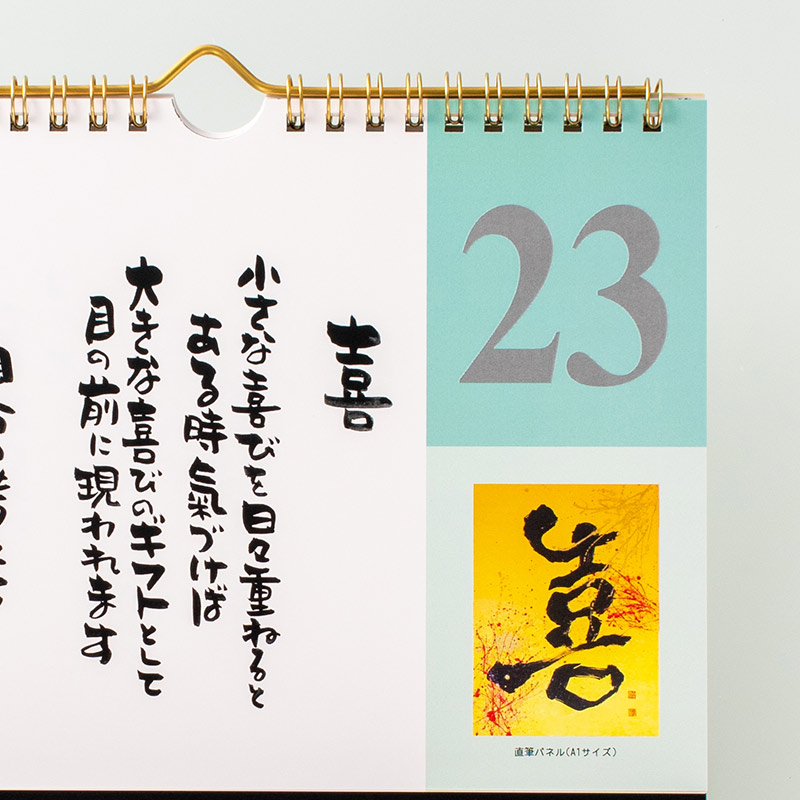 23
喜
小さな喜びを日々重ねると
ある時氣づけば
大きな喜びのギフトとして
目の前に現われます
喜
直筆パネル(A1サイズ)